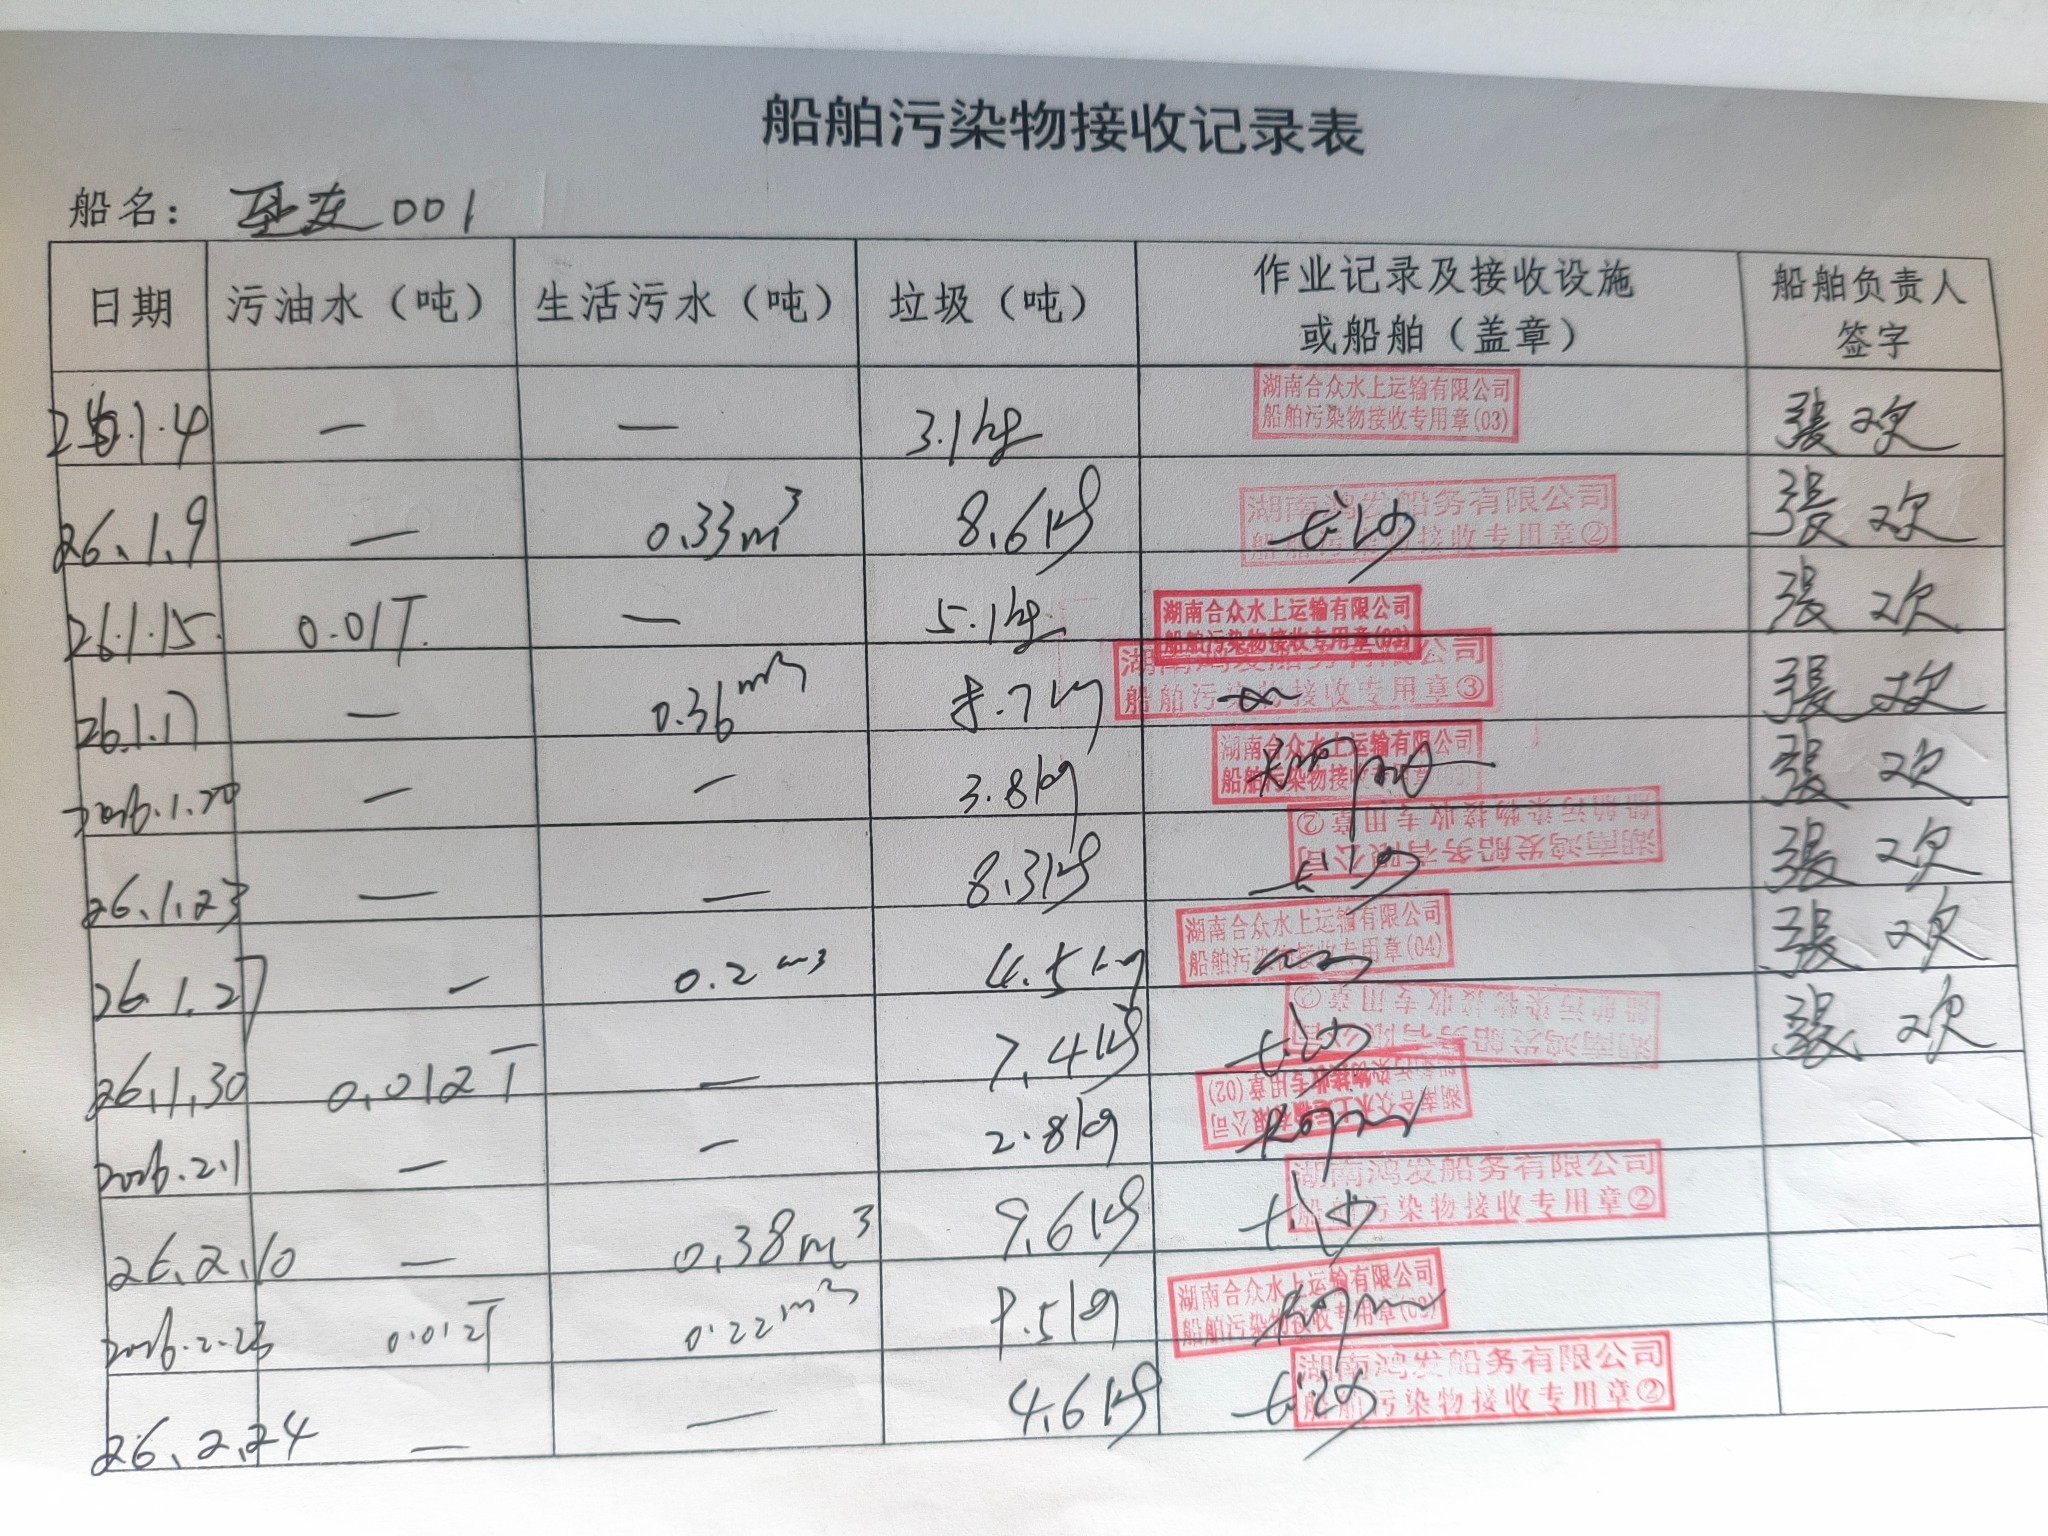 船舶污染物接收记录表
船名： 001
日期 污油水（吨） 生活污水（吨） 垃圾（吨） 作业记录及接收设施或船舶（盖章） 船舶负责人签字
26.1.4 — — 3.1kg 湖南合众水上运输有限公司 船舶污染物接收专用章(03) 張欢
26.1.9 — 0.33m³ 8.6kg 湖南鸿发船务有限公司 船舶污染物接收专用章② 长沙 張欢
26.1.15. 0.01T. — 5.1kg 湖南合众水上运输有限公司 船舶污染物接收专用章 張欢
26.1.17 — 0.36m³ .7kg 湖南鸿发船务有限公司 船舶污染物接收专用章③ 張欢
2026.1.20 — — 3.8kg 湖南合众水上运输有限公司 船舶污染物接收专用章 張欢
26.1.23 — — 8.3kg 湖南鸿发船务有限公司 船舶污染物接收专用章② 长沙 張欢
26.1.27 — 0.2m3 4.5kg 湖南合众水上运输有限公司 船舶污染物接收专用章(04) 張欢
26.1.30 0.012T — 7.4kg 湖南鸿发船务有限公司 船舶污染物接收专用章② 长沙 張欢
2026.2.1 — — 2.8kg 湖南合众水上运输有限公司 船舶污染物接收专用章(02)
26.2.10 — 0.38m³ 9.6kg 湖南鸿发船务有限公司 船舶污染物接收专用章② 长沙
2026.2.23 0.012T 0.22m³ .5kg 湖南合众水上运输有限公司 船舶污染物接收专用章
26.2.24 — — 4.6kg 湖南鸿发船务有限公司 船舶污染物接收专用章② 长沙